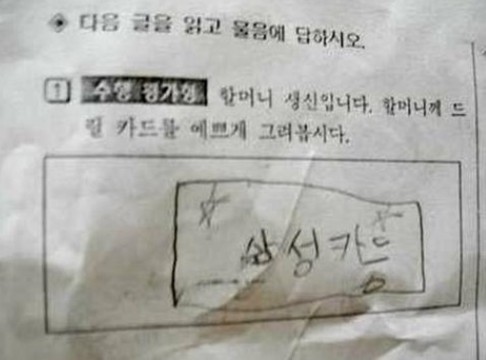 ◈ 다음 글을 읽고 물음에 답하시오.
1 수행 평가형 할머니 생신입니다. 할머니께 드
릴 카드를 예쁘게 그려봅시다.
삼성카드